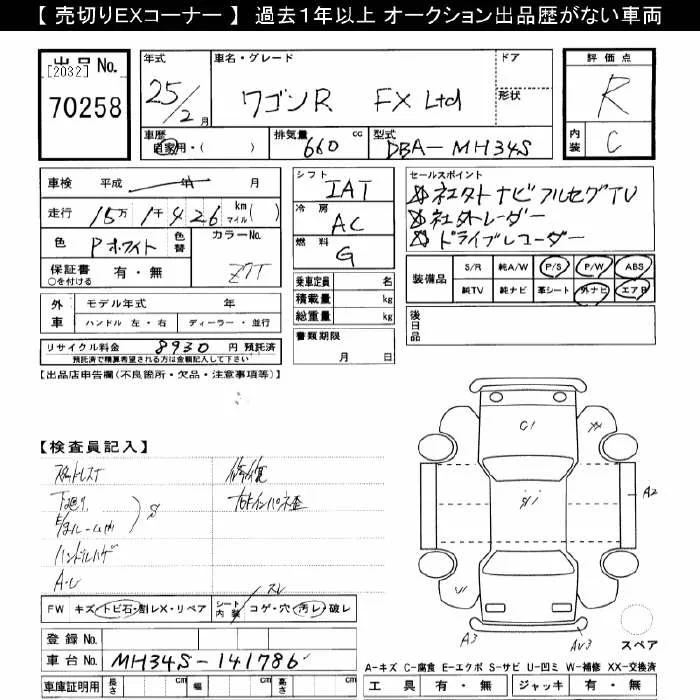 【 売切りEXコーナー 】 過去1年以上 オークション出品歴がない車両
出品 No.
[2032]
70258
年式
25/2月
車名・グレード
ワゴンR FX Ltd
ドア
形状
評価点
R
内装
C
車歴
自家用・( )
排気量
660 cc
型式
DBA-MH34S
車検 平成 年 月
走行 15万 1千 426 km マイル( )
色 Pホワイト
色替
カラーNo.
Z7T
保証書 有・無
○を付ける
外車
モデル年式 年
ハンドル 左・右 ディーラー・並行
リサイクル料金 8930 円 預託済
預託済で精算希望される方は金額記入して下さい
シフト
IAT
冷房
AC
燃料
G
乗車定員 名
積載量 kg
総重量 kg
書類期限
月 日
セールスポイント
社外ナビフルセグTV
社外レーダー
ドライブレコーダー
装備品
S/R 純A/W P/S P/W ABS
純TV 純ナビ 革シート 外ナビ エアB
後日品
【出品店申告欄(不良箇所・欠品・注意事項等)】
【検査員記入】
下廻り
S
ハンドルハゲ
修復
FW キズ・トビ石・割レX・リペア
シート内装
スレ
コゲ・穴・汚レ・破レ
登録 No.
車台 No. MH34S-141786
車庫証明用 長さ cm 幅 cm 高さ cm
A2
A3
スペア
A-キズ C-腐食 E-エクボ S-サビ U-凹ミ W-補修 XX-交換済
工具 有・無 ジャッキ 有・無